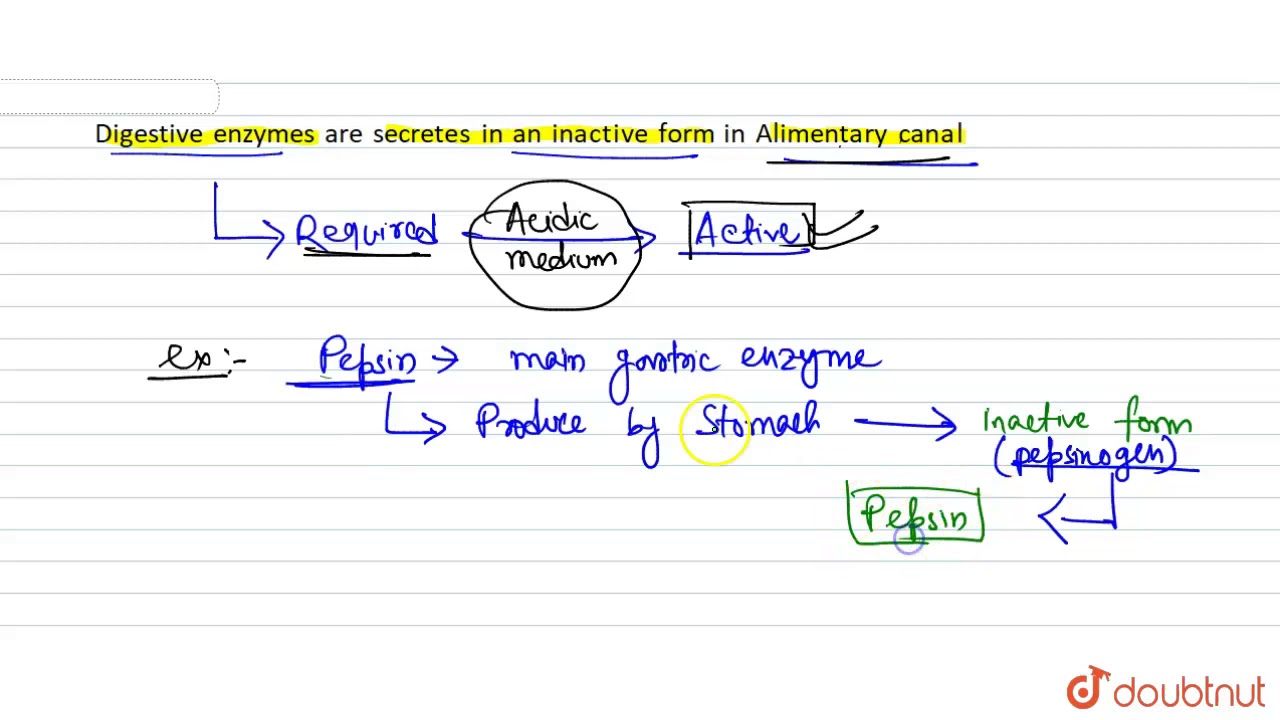 Digestive enzymes are secretes in an inactive form in Alimentary canal
Required Acidic medium Active
ex:- Pepsin → main gastric enzyme
Produce by Stomach → inactive form
(pepsinogen)
Pepsin
doubtnut